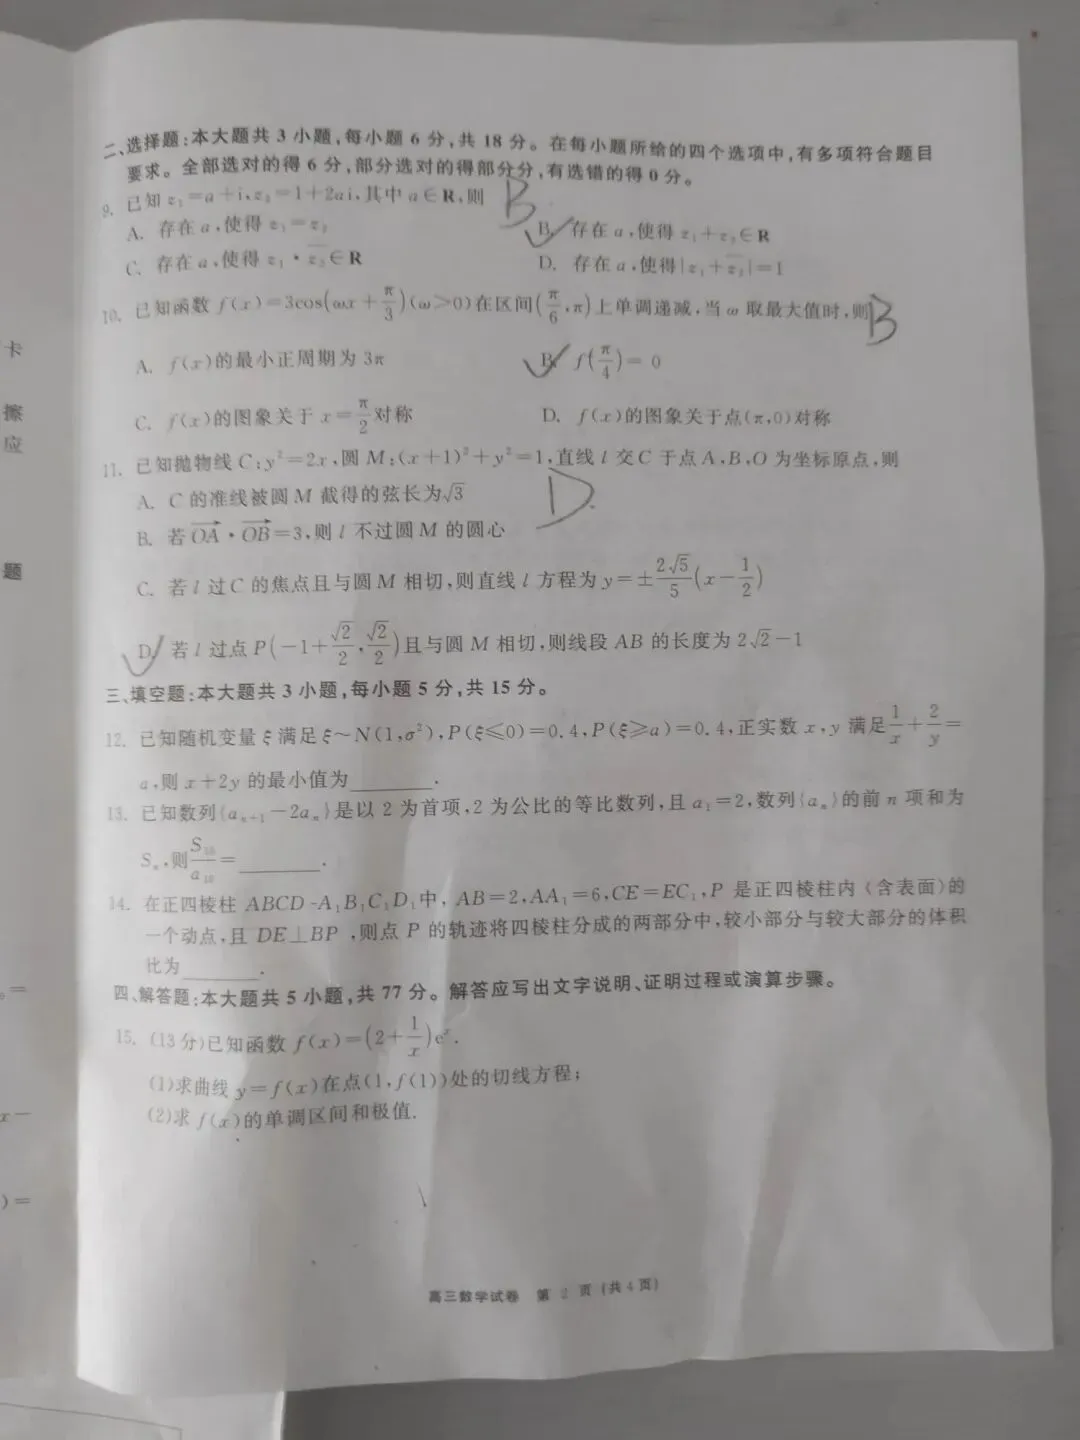 二、选择题:本大题共 3 小题,每小题 6 分,共 18 分。在每小题所给的四个选项中,有多项符合题目
要求。全部选对的得 6 分,部分选对的得部分分,有选错的得 0 分。
9. 已知 z₁=a+i,z₂=1+2ai,其中 a∈R,则 B
A. 存在 a,使得 z₁=z₂
B. 存在 a,使得 z₁+z₂∈R
C. 存在 a,使得 z₁·z̅₂∈R
D. 存在 a,使得|z₁+z̅₂|=1
10. 已知函数 f(x)=3cos(ωx+π/3)(ω>0)在区间(π/6,π)上单调递减,当 ω 取最大值时,则 B
A. f(x)的最小正周期为 3π
B. f(π/4)=0
C. f(x)的图象关于 x=π/2对称
D. f(x)的图象关于点(π,0)对称
11. 已知抛物线 C:y²=2x,圆 M:(x+1)²+y²=1,直线 l 交 C 于点 A,B,O 为坐标原点,则
A. C 的准线被圆 M 截得的弦长为√3
D
B. 若OA·OB=3,则 l 不过圆 M 的圆心
C. 若 l 过 C 的焦点且与圆 M 相切,则直线 l 方程为 y=±2√5/5(x-1/2)
D. 若 l 过点 P(-1+√2/2,√2/2)且与圆 M 相切,则线段 AB 的长度为 2√2-1
三、填空题:本大题共 3 小题,每小题 5 分,共 15 分。
12. 已知随机变量 ξ 满足 ξ~N(1,σ²),P(ξ≤0)=0.4,P(ξ≥a)=0.4,正实数 x,y 满足1/x+2/y=
a,则 x+2y 的最小值为________.
13. 已知数列{aₙ₊₁-2aₙ}是以 2 为首项,2 为公比的等比数列,且 a₁=2,数列{aₙ}的前 n 项和为
Sₙ,则S₁₀/a₁₀=________.
14. 在正四棱柱 ABCD-A₁B₁C₁D₁中, AB=2,AA₁=6,CE=EC₁,P 是正四棱柱内(含表面)的
一个动点,且 DE⊥BP ,则点 P 的轨迹将四棱柱分成的两部分中,较小部分与较大部分的体积
比为________.
四、解答题:本大题共 5 小题,共 77 分。解答应写出文字说明、证明过程或演算步骤。
15. (13分)已知函数 f(x)=(2+1/x)eˣ.
(1)求曲线 y=f(x)在点(1,f(1))处的切线方程;
(2)求 f(x)的单调区间和极值.
高三数学试卷 第 2 页(共 4 页)
卡
擦
应
题
。=
x-
)=